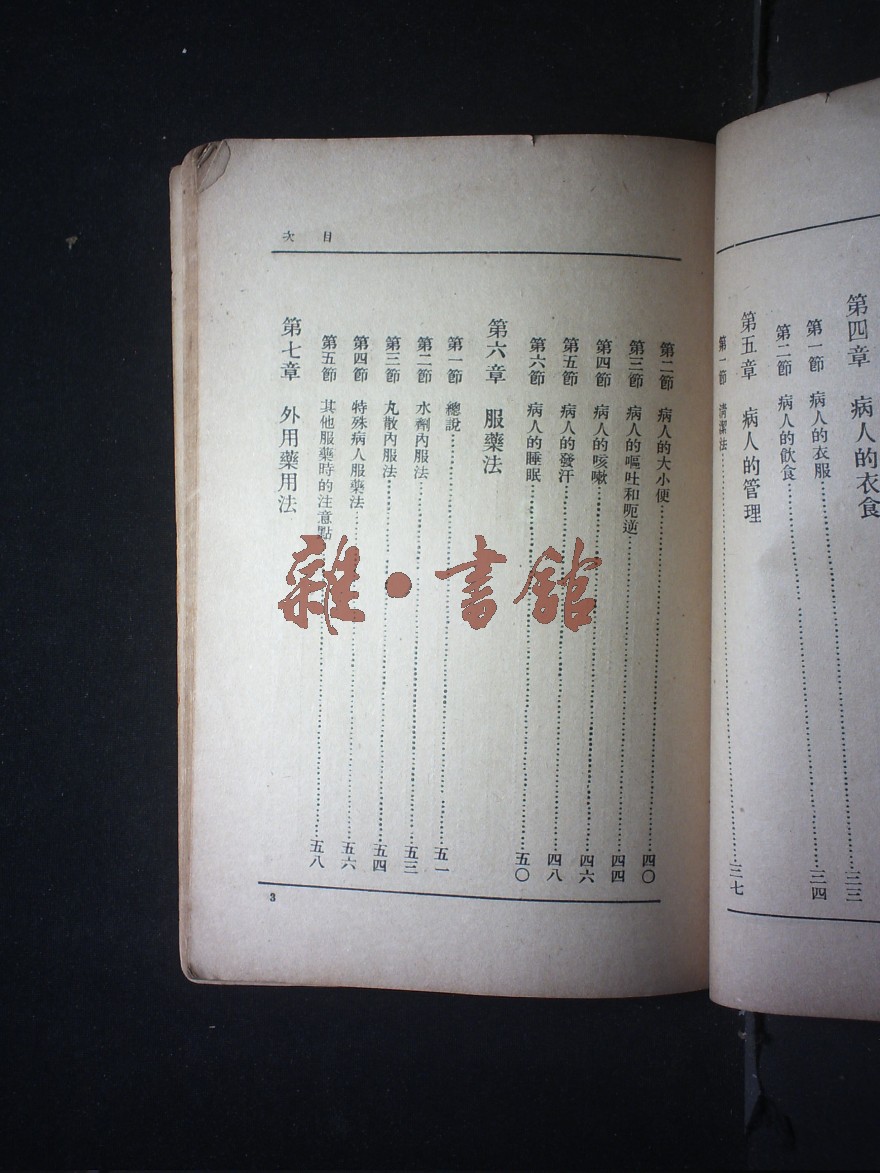 第四章　病人的衣食……三三
第一節　病人的衣服……三四
第二節　病人的飲食
第五章　病人的管理
第一節　清潔法……三七
次　目
第二節　病人的大小便……四〇
第三節　病人的嘔吐和呃逆……四四
第四節　病人的咳嗽……四六
第五節　病人的發汗……四八
第六節　病人的睡眠……五〇
第六章　服藥法
第一節　總說……五一
第二節　水劑內服法……五三
第三節　丸散內服法……五四
第四節　特殊病人服藥法……五六
第五節　其他服藥時的注意點……五八
第七章　外用藥用法
3
雜·書館